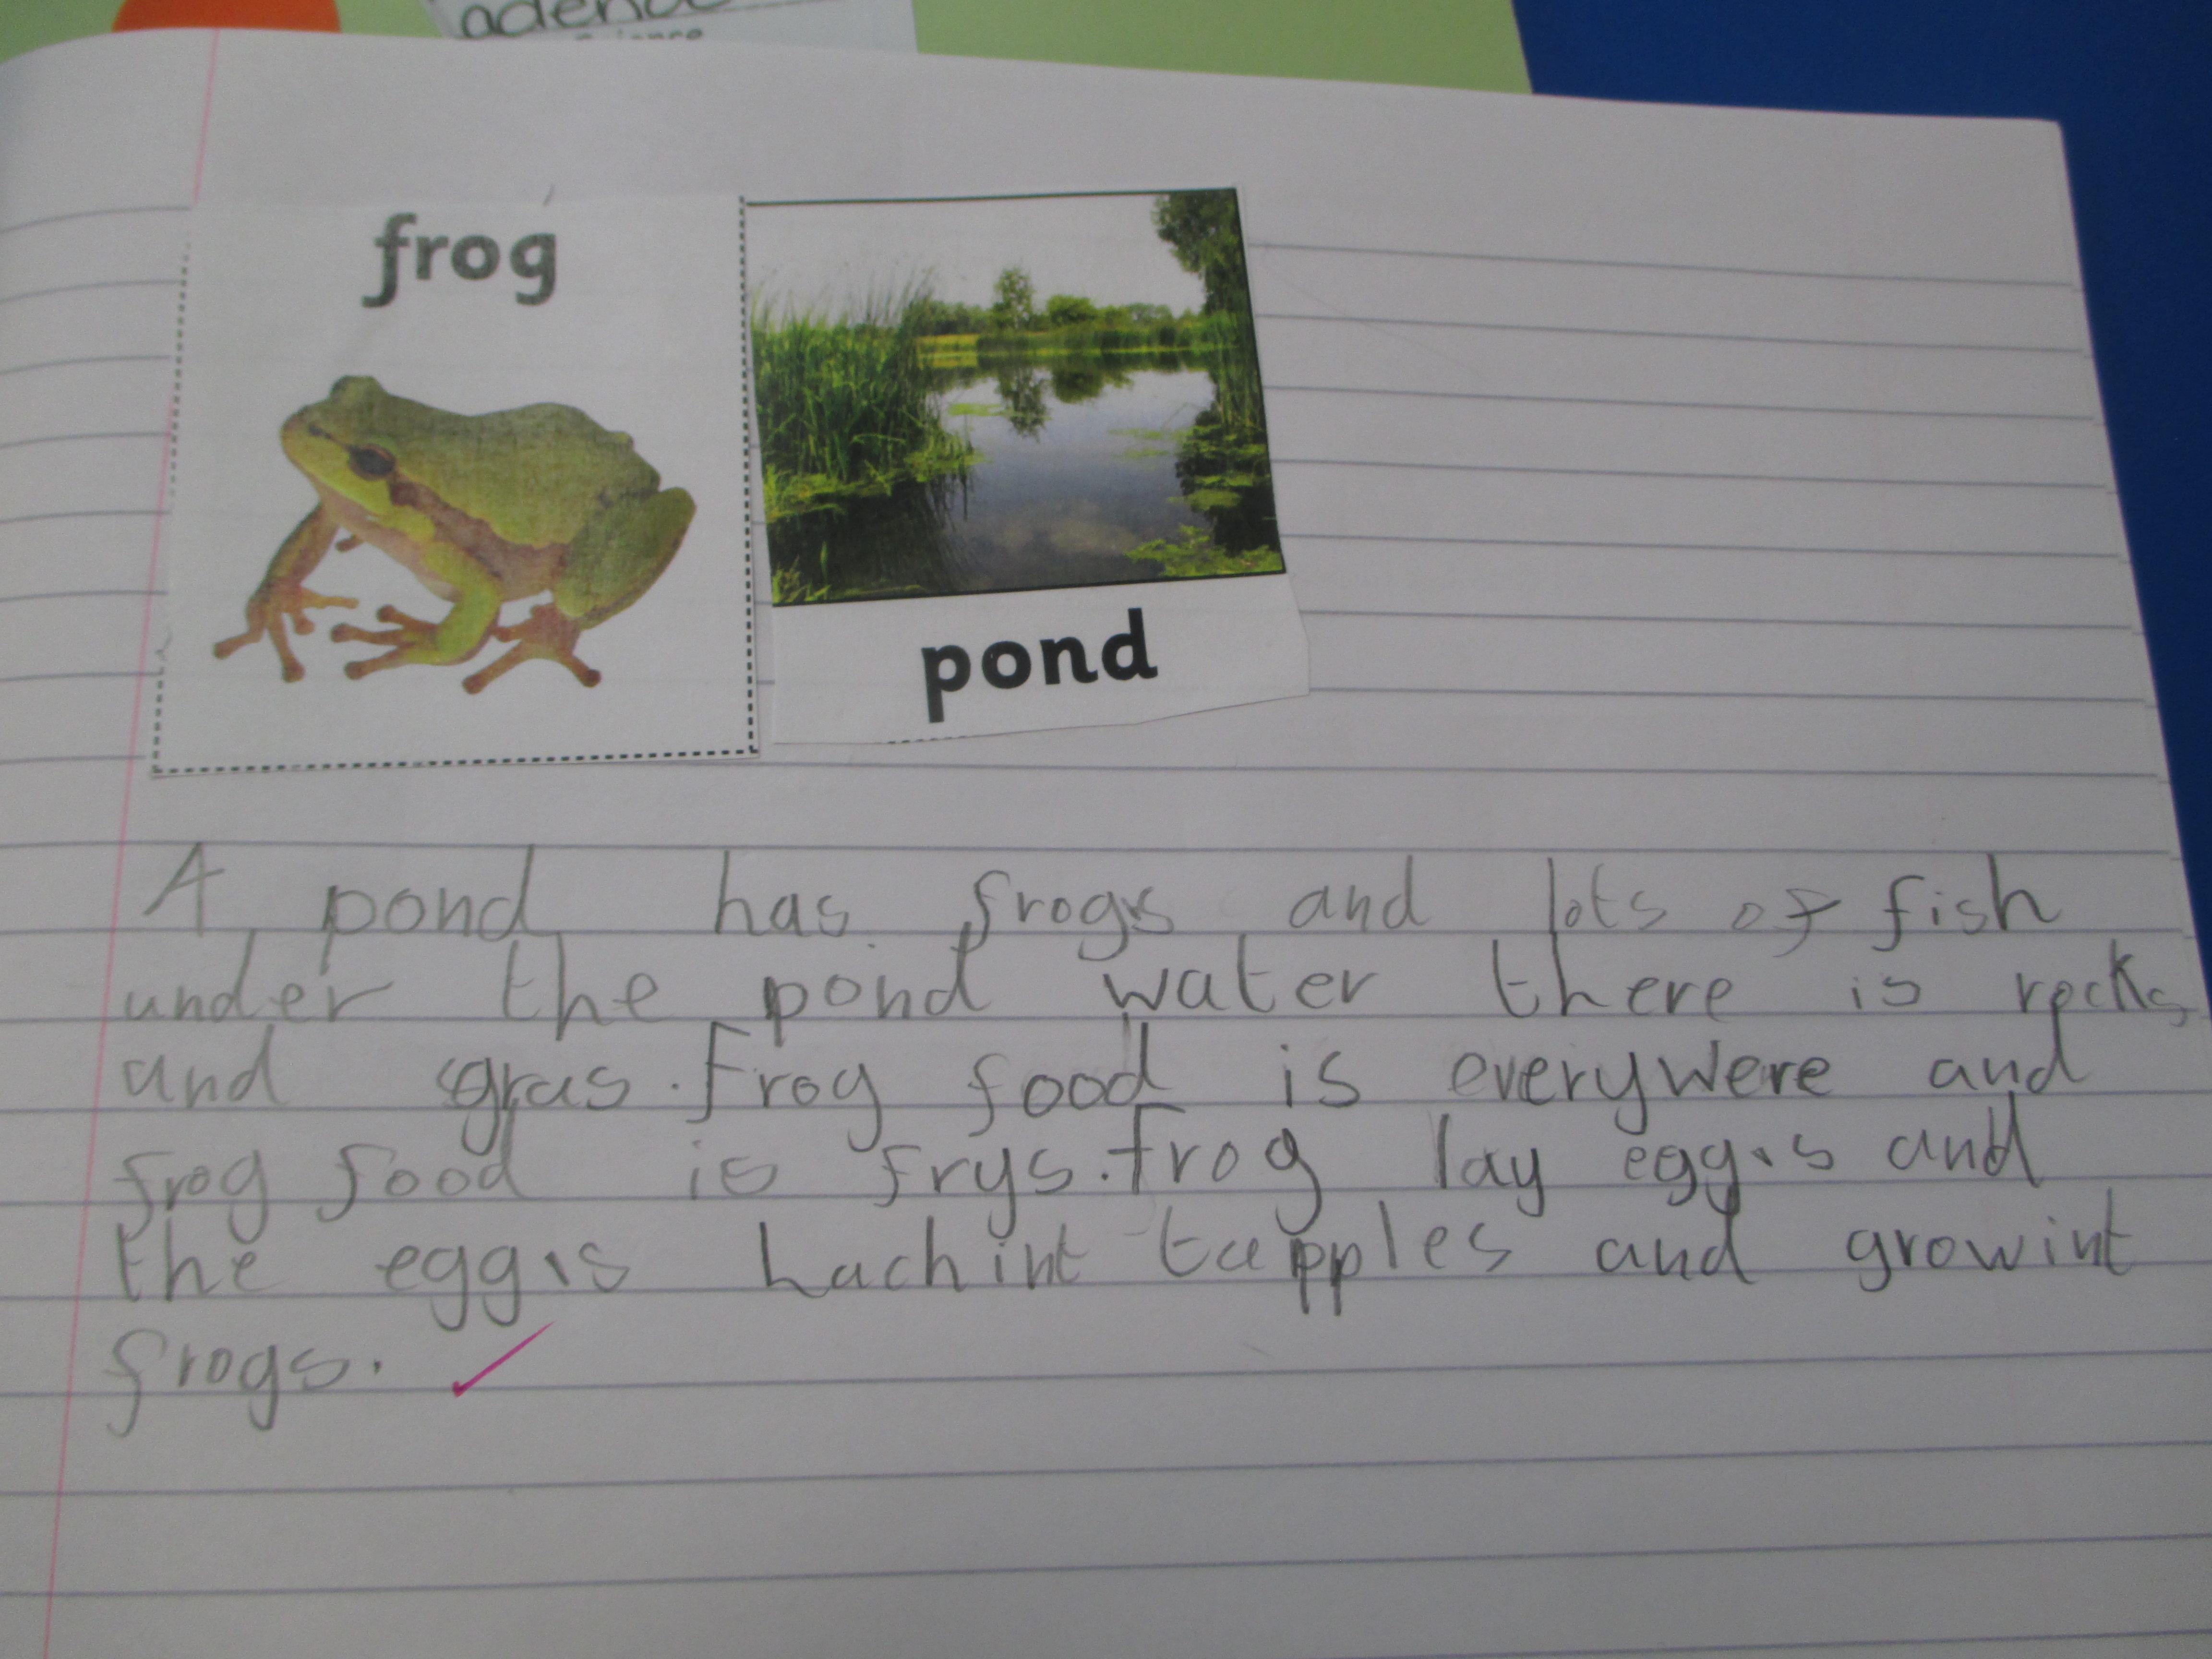 Science
frog
pond
A pond has frogs and lots of fish
under the pond water there is rocks
and gras. Frog food is everywere and
frog food is frys. Frog lay eggs and
the eggis hachint tapples and growint
frogs.